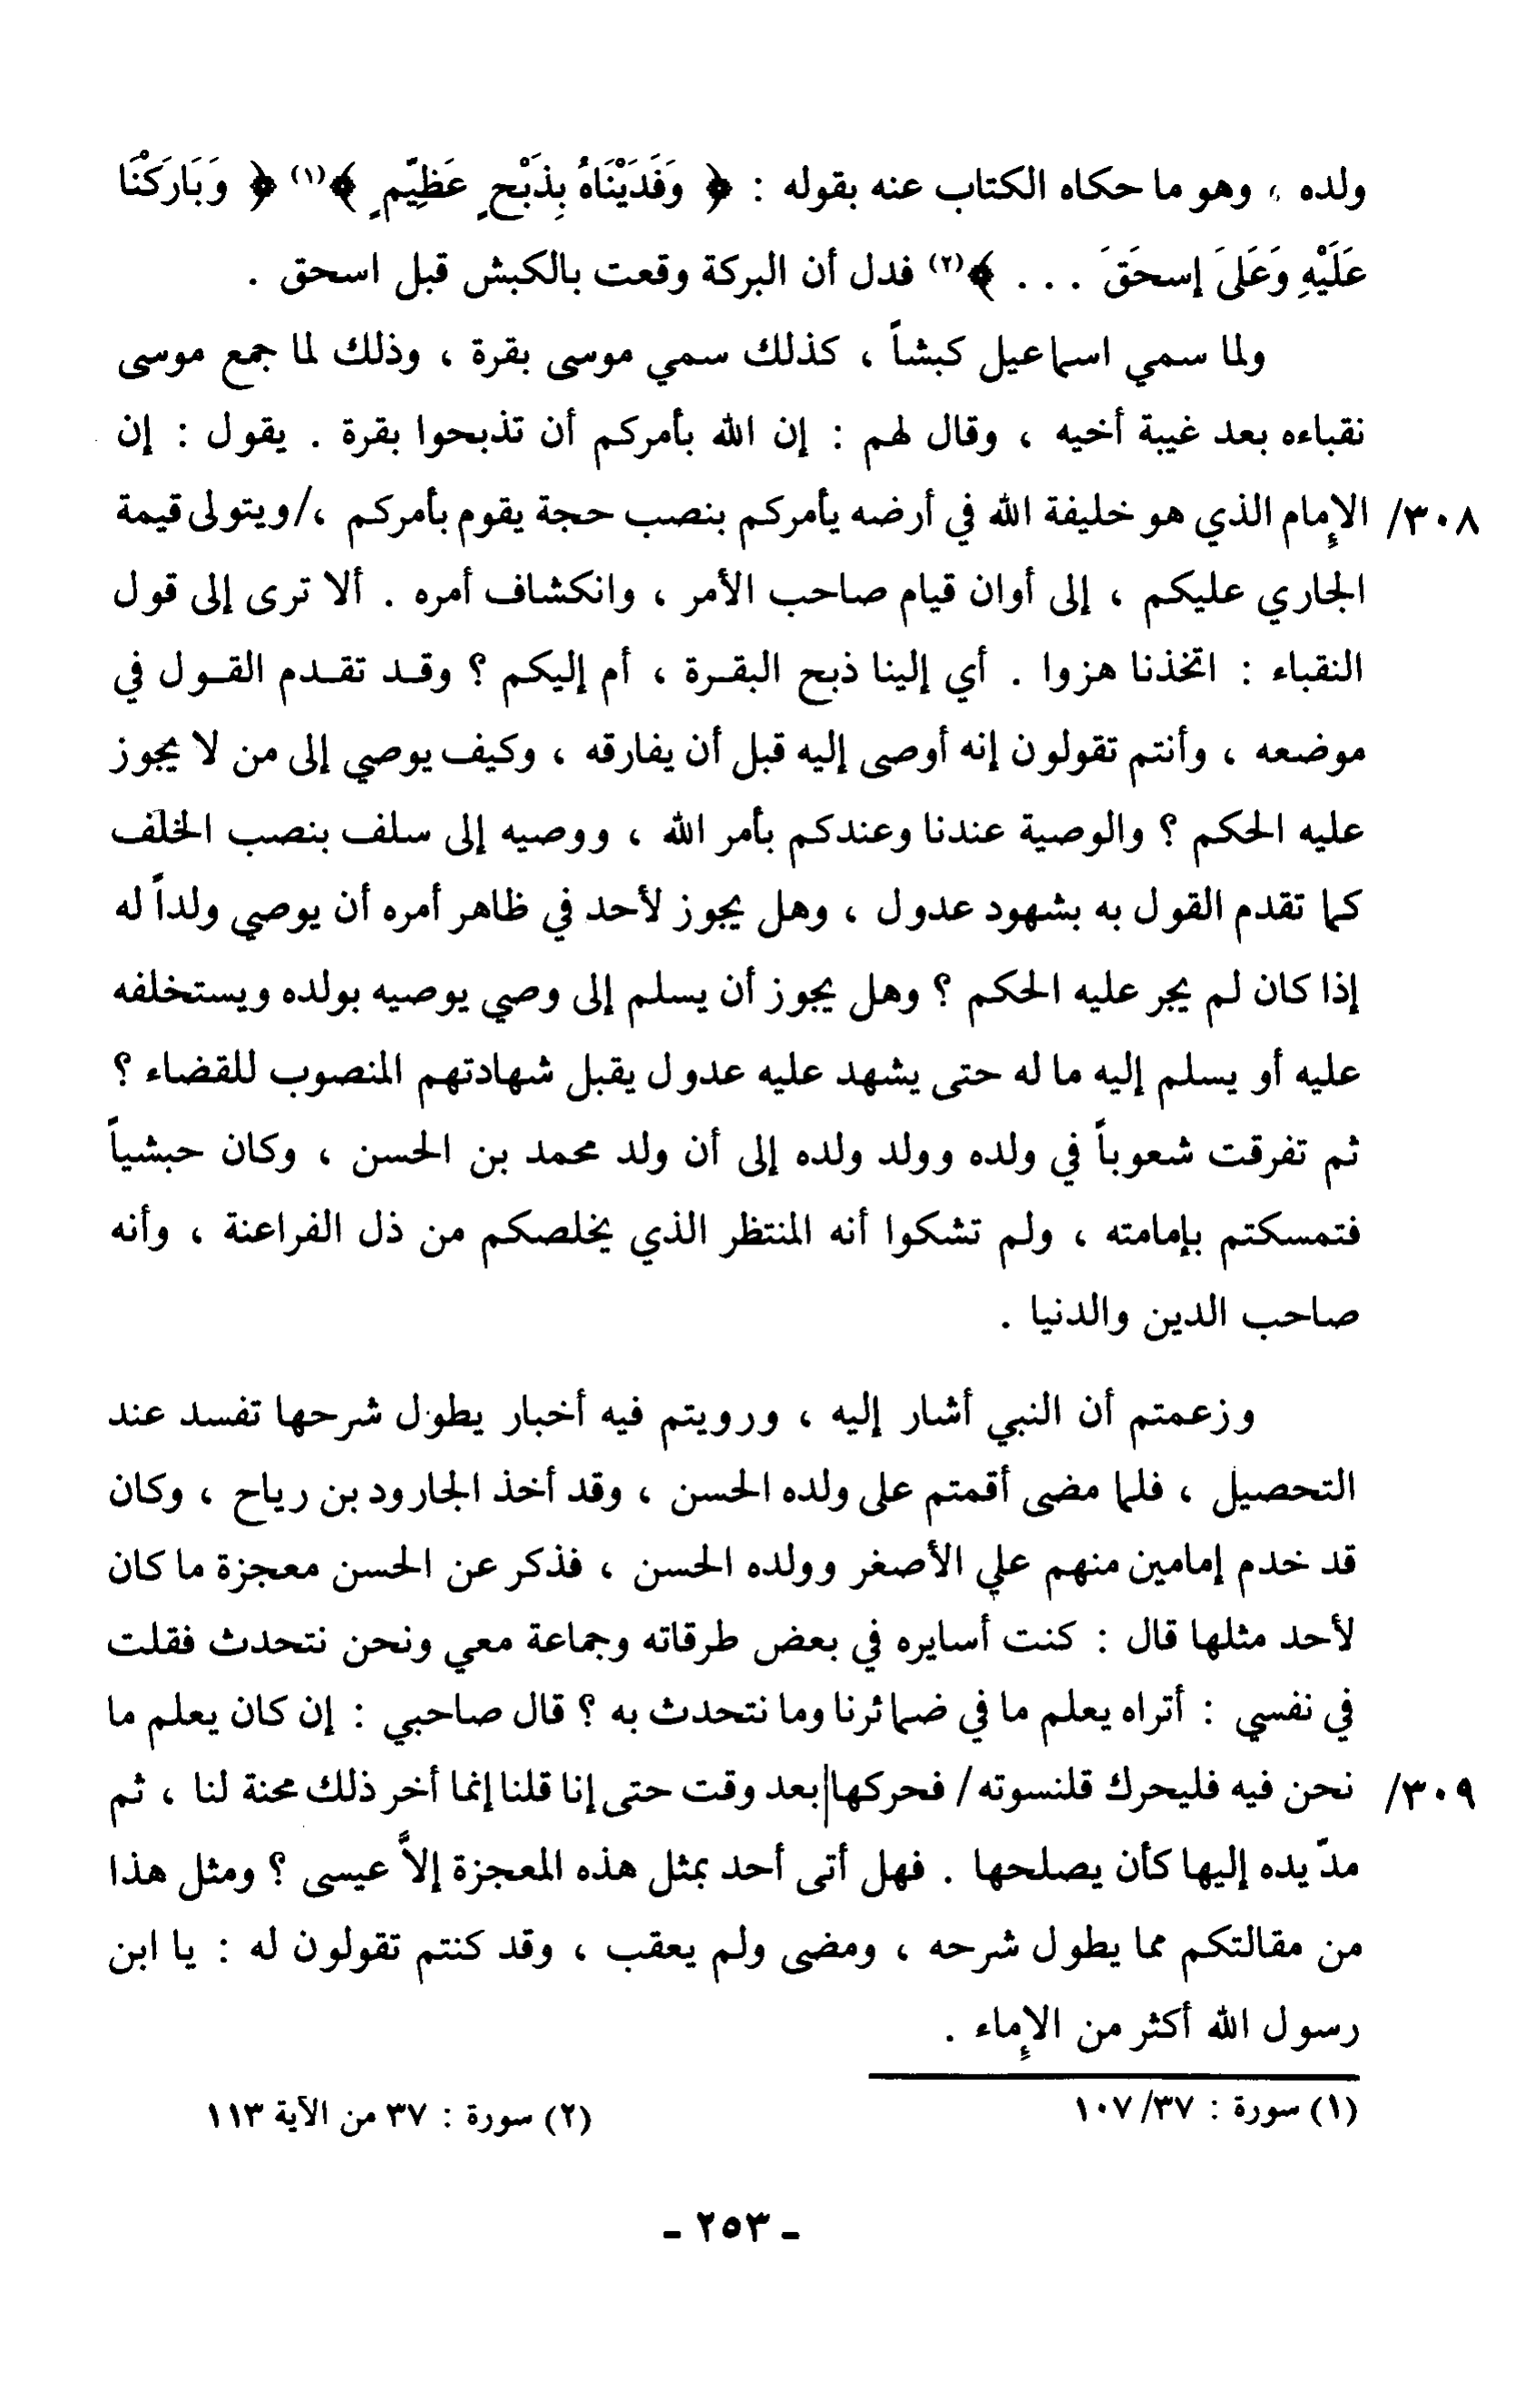 ولده ، وهو ما حكاه الكتاب عنه بقوله : ﴿ وَفَدَيْنَاهُ بِذَبْحٍ عَظِيّمٍ ﴾(١) ﴿ وَبَارَكْنَا
عَلَيْهِ وَعَلَىَ إسحَقَ . . . ﴾(٢) فدل أن البركة وقعت بالكبش قبل اسحق .
ولما سمي اسماعيل كبشاً ، كذلك سمي موسى بقرة ، وذلك لما جمع موسى
نقباءه بعد غيبة أخيه ، وقال لهم : إن الله بأمركم أن تذبحوا بقرة . يقول : إن
٣٠٨/ الإمام الذي هو خليفة الله في أرضه يأمركم بنصب حجة يقوم بأمركم ،/ويتولى قيمة
الجاري عليكم ، إلى أوان قيام صاحب الأمر ، وانكشاف أمره . ألا ترى إلى قول
النقباء : اتخذنا هزوا . أي إلينا ذبح البقـرة ، أم إليكم ؟ وقـد تقـدم القـول في
موضعه ، وأنتم تقولون إنه أوصى إليه قبل أن يفارقه ، وكيف يوصي إلى من لا يجوز
عليه الحكم ؟ والوصية عندنا وعندكم بأمر الله ، ووصيه إلى سلف بنصب الخلف
كما تقدم القول به بشهود عدول ، وهل يجوز لأحد في ظاهر أمره أن يوصي ولداً له
إذا كان لم يجر عليه الحكم ؟ وهل يجوز أن يسلم إلى وصي يوصيه بولده ويستخلفه
عليه أو يسلم إليه ما له حتى يشهد عليه عدول يقبل شهادتهم المنصوب للقضاء ؟
ثم تفرقت شعوباً في ولده وولد ولده إلى أن ولد محمد بن الحسن ، وكان حبشياً
فتمسكتم بإمامته ، ولم تشكوا أنه المنتظر الذي يخلصكم من ذل الفراعنة ، وأنه
صاحب الدين والدنيا .
وزعمتم أن النبي أشار إليه ، ورويتم فيه أخبار يطول شرحها تفسد عند
التحصيل ، فلما مضى أقمتم على ولده الحسن ، وقد أخذ الجارود بن رياح ، وكان
قد خدم إمامين منهم علي الأصغر وولده الحسن ، فذكر عن الحسن معجزة ما كان
لأحد مثلها قال : كنت أسايره في بعض طرقاته وجماعة معي ونحن نتحدث فقلت
في نفسي : أتراه يعلم ما في ضمائرنا وما نتحدث به ؟ قال صاحبي : إن كان يعلم ما
٣٠٩/ نحن فيه فليحرك قلنسوته / فحركها بعد وقت حتى إنا قلنا إنما أخر ذلك محنة لنا ، ثم
مدّ يده إليها كأن يصلحها . فهل أتى أحد بمثل هذه المعجزة إلاَّ عيسى ؟ ومثل هذا
من مقالتكم مما يطول شرحه ، ومضى ولم يعقب ، وقد كنتم تقولون له : يا ابن
رسول الله أكثر من الإماء .
(١) سورة : ٣٧/ ١٠٧ (٢) سورة : ٣٧ من الآية ١١٣
- ٢٥٣ -